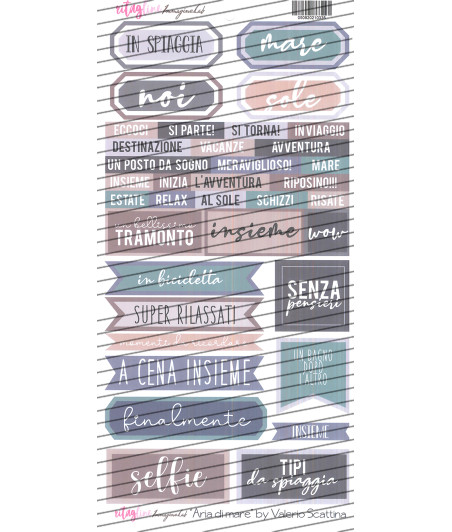 ritagline Imaginelab
IN SPIAGGIA
mare
noi
sole
ECCOCI SI PARTE! SI TORNA! IN VIAGGIO
DESTINAZIONE VACANZE AVVENTURA
UN POSTO DA SOGNO MERAVIGLIOSO! MARE
INSIEME INIZIA L'AVVENTURA RIPOSINO!!!
ESTATE RELAX AL SOLE SCHIZZI RISATE
un bellissimo
TRAMONTO
insieme
wow
in bicicletta
SENZA
pensieri
SUPER RILASSATI
momento da ricordare
UN BAGNO
DOPO
L'ALTRO
A CENA INSIEME
finalmente
INSIEME
selfie
TIPI
da spiaggia
ritagline Imaginelab "Aria di mare" by Valerio Scattina